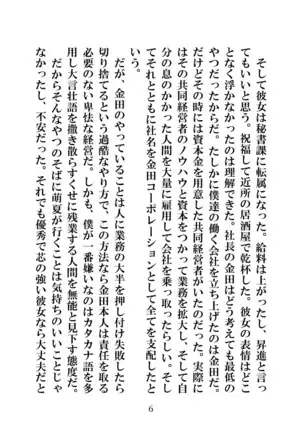 そして彼女は秘書課に転属になった。給料は上がったし、昇進と言っ
てもいいと思う。祝福して近所の居酒屋で乾杯した。彼女の表情はどこ
となく浮かなかったのは理解できた。社長の金田はどう考えても最低の
やつだったからだ。たしかに僕達の働く会社を立ち上げたのは金田だ。
だけどその時には資本金を用意した共同経営者がいたのだった。実際に
はその共同経営者のノウハウと資本をつかって業務を拡大し、そして自
分の息のかかった人間を大量に雇用して会社を乗っ取ったらしい。そし
てそれとともに社名を金田コーポレーションとして全てを支配したと
いう。
だが、金田のやっていることは人に業務の大半を押し付け失敗したら
切り捨てるという過酷なやり方で、この方法なら金田本人は責任を取る
必要のない卑怯な経営だ。しかも、僕が一番嫌いなのはカタカナ語を多
用し大言壮語を撒き散らすくせに残業する人間を無能と見下す態度だ。
だからそんなやつのそばに萌夏が行くことは気持ちのいいことじゃ
なかったし、不安だった。それでも優秀で芯の強い彼女なら大丈夫だと
6